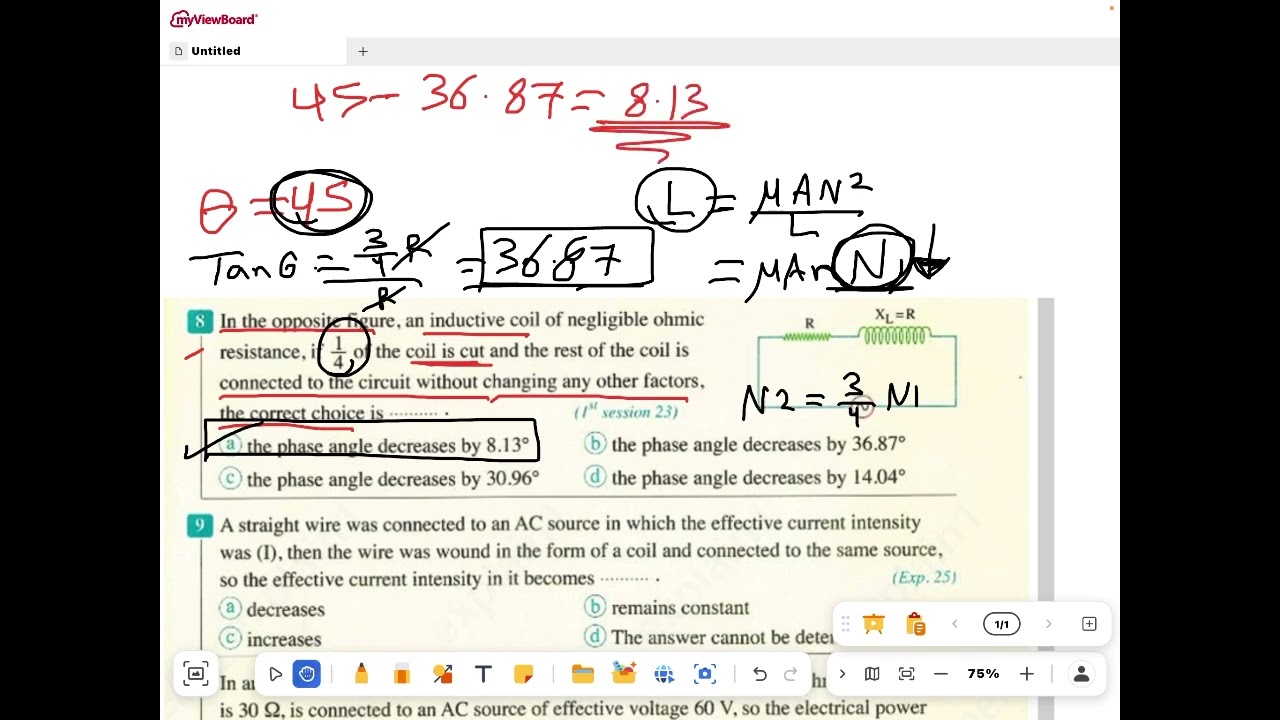 myViewBoard
Untitled
45 - 36.87 = 8.13
θ = 45
L = μAN² / L
Tan θ = 3/4 R / R = 36.87
= μAn N₁ ↓
8 In the opposite figure, an inductive coil of negligible ohmic
resistance, if 1/4 of the coil is cut and the rest of the coil is
connected to the circuit without changing any other factors,
the correct choice is .......... .
(1st session 23)
R
XL=R
N2 = 3/4 N1
a the phase angle decreases by 8.13°
b the phase angle decreases by 36.87°
c the phase angle decreases by 30.96°
d the phase angle decreases by 14.04°
9 A straight wire was connected to an AC source in which the effective current intensity
was (I), then the wire was wound in the form of a coil and connected to the same source,
so the effective current intensity in it becomes .......... .
(Exp. 25)
a decreases
b remains constant
c increases
d The answer cannot be
1/1
75%
In
is 30 Ω, is connected to an AC source of effective voltage 60 V, so the electrical power